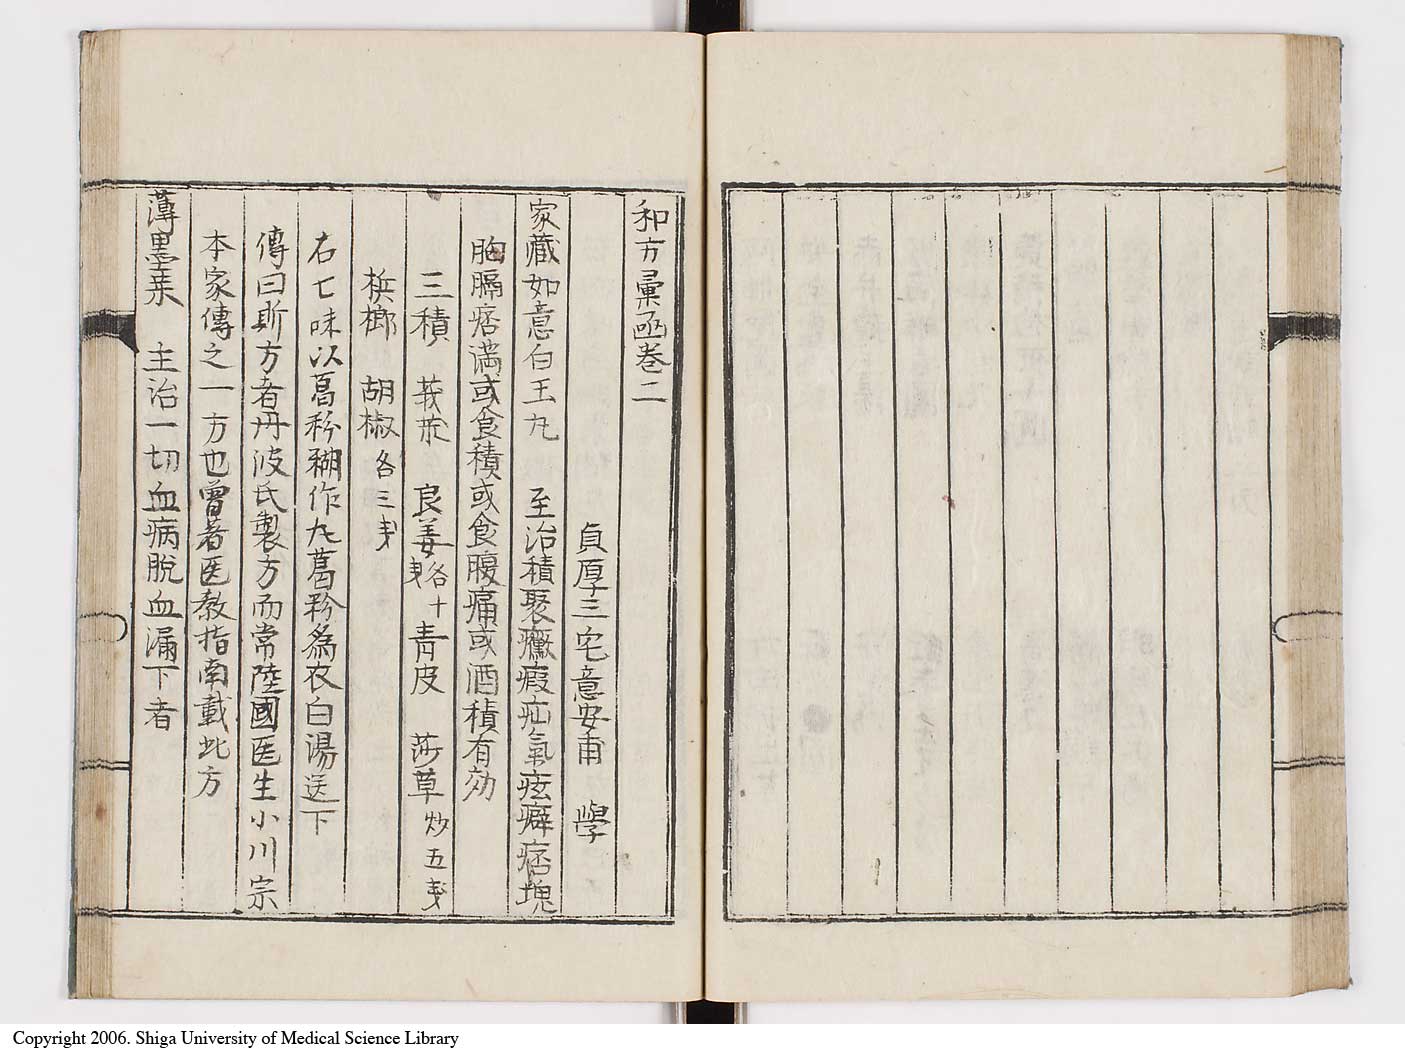 和方彙函巻二
貞厚三宅意安甫 學
家藏如意白玉丸 至治積聚癥瘕疝氣痃癖痞塊
胸膈痞満或食積或食腹痛或酒積有効
三積 莪茂 良姜各十戔 青皮 莎草炒五戔
梹榔 胡椒各三戔
右七味以葛粉糊作丸葛粉為衣白湯送下
傳曰斯方者丹波氏製方而常陸國医生小川宗
本家傳之一方也曽著医教指南載此方
薄墨 主治一切血病脱血漏下者
Copyright 2006. Shiga University of Medical Science Library